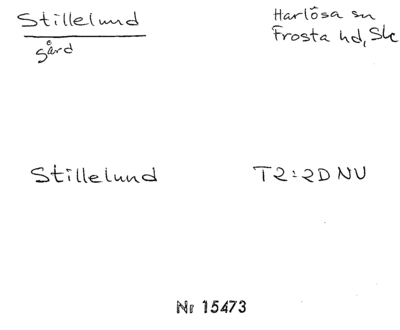 Stillelund
gård
Harlösa sn
Frosta hd, Sk
Stillelund
T2:2D NV
Nr 15473